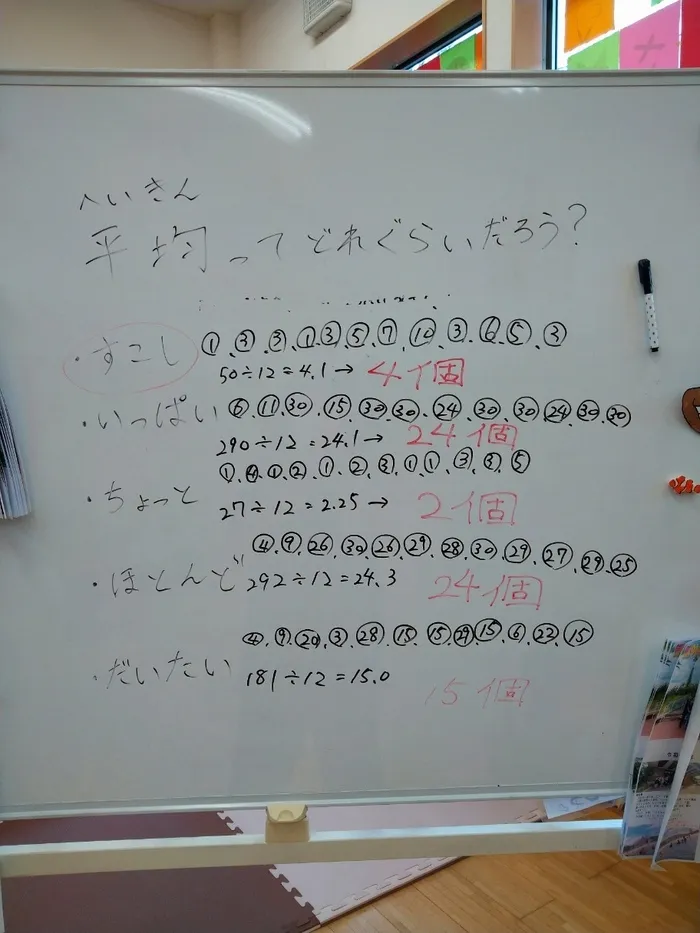 へいきん
平均ってどれぐらいだろう?
・すこし ①、③、③、①、③、⑤、⑦、⑩、③、⑥、⑤、③
50÷12=4.1→ 4個
・いっぱい ⑥、⑪、㉚、⑮、㉚、㉚、㉔、㉚、㉚、㉔、㉚、㉚
290÷12=24.1→ 24個
・ちょっと
27÷12=2.25→ 2個
④、⑨、㉖、㉚、㉖、㉙、㉘、㉚、㉙、㉗、㉙、㉕
・ほとんど 292÷12=24.3 24個
④、⑨、⑳、③、㉘、⑮、⑮、㉙、⑮、⑥、㉒、⑮
・だいたい 181÷12=15.0 15個